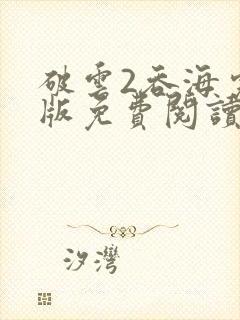 破雲2吞海
版免費閱讀
汐灣